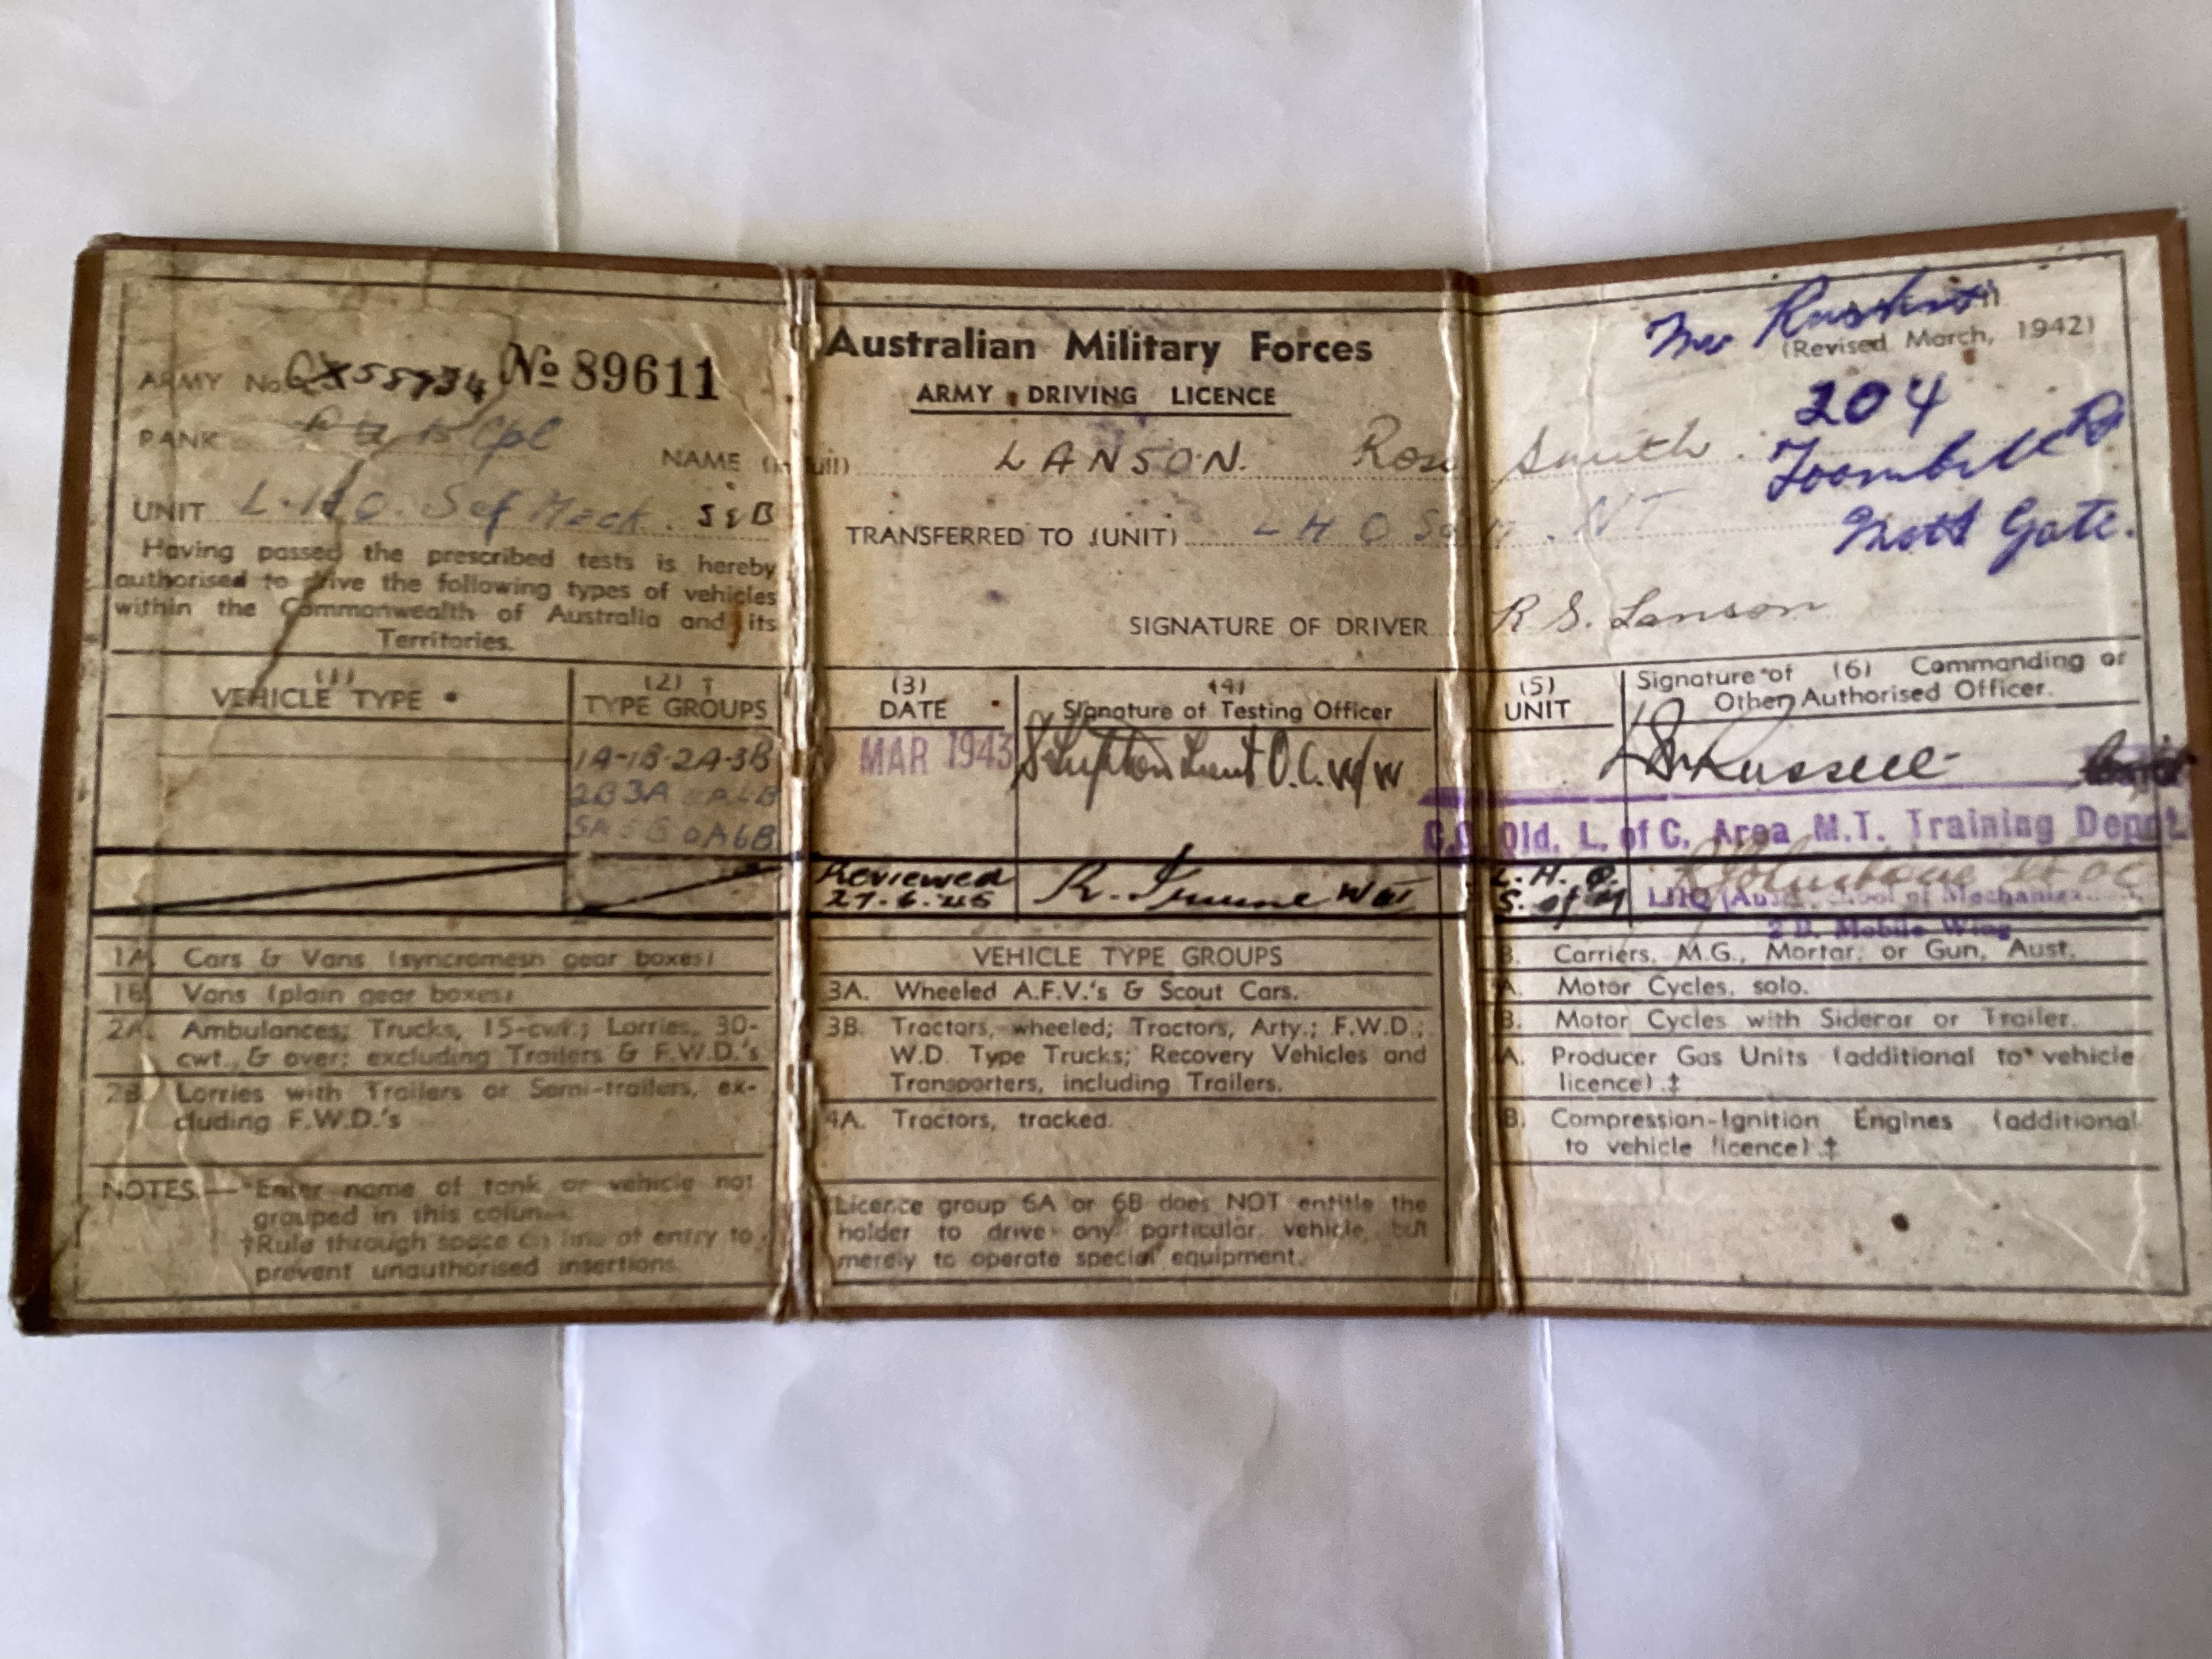 ARMY No. QX55934 No 89611
RANK Cpl
UNIT L.H.Q. Sch Mech. S & B
Having passed the prescribed tests is hereby
authorised to drive the following types of vehicles
within the Commonwealth of Australia and its
Territories.
(1)
VEHICLE TYPE *
(2) †
TYPE GROUPS
1A-1B-2A-3B
2B 3A 4B
5A 5B 6A 6B
1A. Cars & Vans (syncromesh gear boxes)
1B. Vans (plain gear boxes)
2A. Ambulances; Trucks, 15-cwt.; Lorries, 30-
cwt., & over; excluding Trailers & F.W.D.'s
2B. Lorries with Trailers or Semi-trailers, ex-
cluding F.W.D.'s
NOTES.—*Enter name of tank or vehicle not
grouped in this column.
†Rule through space on line of entry to
prevent unauthorised insertions.
Australian Military Forces
ARMY DRIVING LICENCE
NAME (in full) LANSON. Ross Smith.
TRANSFERRED TO (UNIT) L H Q NT
SIGNATURE OF DRIVER R S. Lanson
(3)
DATE
(4)
Signature of Testing Officer
MAR 1943
Lieut O.C. W/W
Reviewed
27.6.45
VEHICLE TYPE GROUPS
3A. Wheeled A.F.V.'s & Scout Cars.
3B. Tractors, wheeled; Tractors, Arty.; F.W.D.;
W.D. Type Trucks; Recovery Vehicles and
Transporters, including Trailers.
4A. Tractors, tracked.
Licence group 6A or 6B does NOT entitle the
holder to drive any particular vehicle, but
merely to operate special equipment.
Mr
(Revised March, 1942)
204
Toombul Rd
Gate.
(5)
UNIT
Signature of (6) Commanding or
Other Authorised Officer.
Russell
C.O. Qld. L. of C. Area M.T. Training Depot
L.H.Q.
S. of M
LHQ (Aust. School of Mechanis
2 D. Mobile Wing
B. Carriers, M.G., Mortar, or Gun, Aust.
A. Motor Cycles, solo.
B. Motor Cycles with Sidecar or Trailer.
A. Producer Gas Units (additional to vehicle
licence).‡
B. Compression-Ignition Engines (additional
to vehicle licence).‡